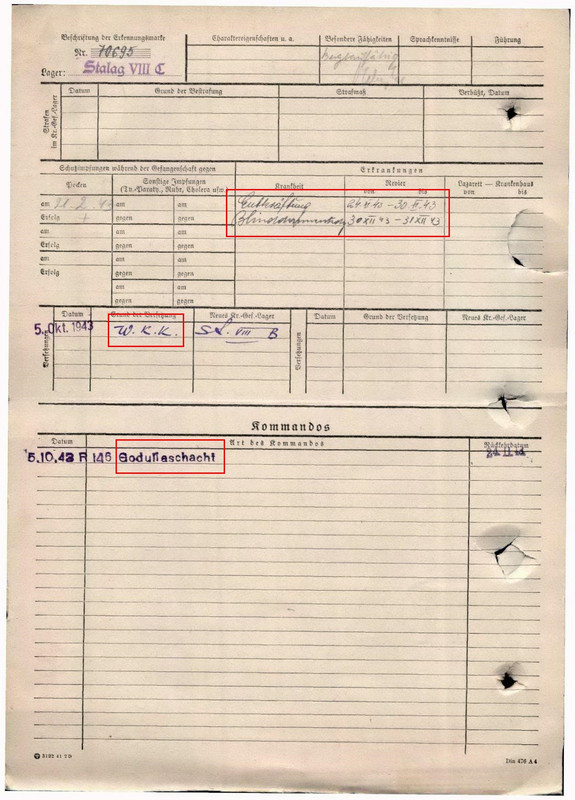 Beschriftung der Erkennungsmarke
Nr. 70695
Lager: Stalag VIII C
Charaktereigenschaften u. a.
Besondere Fähigkeiten
Sprachkenntnisse
Führung
Strafen im Kr.-Gef.-Lager
Datum
Grund der Bestrafung
Strafmaß
Verbüßt, Datum
Schutzimpfungen während der Gefangenschaft gegen
Pocken
Sonstige Impfungen
(Ty.-Paraty., Ruhr, Cholera usw.)
am am am
Erfolg + gegen gegen
am am am
Erfolg gegen gegen
am am am
Erfolg gegen gegen
am am
gegen gegen
Erkrankungen
Krankheit
Revier
von bis
Lazarett — Krankenhaus
von bis
24 XI 43 – 30 XI 43
30 XII 43 – 31 XII 43
Versetzungen
Datum
Grund der Versetzung
Neues Kr.-Gef.-Lager
5. Okt. 1943 W. K. K. St. VIII B
Versetzungen
Datum
Grund der Versetzung
Neues Kr.-Gef.-Lager
Kommandos
Datum
Art des Kommandos
Rückkehrdatum
5.10.43 R 146 Godullaschacht
3133 41 2 D
Din 476 A 4